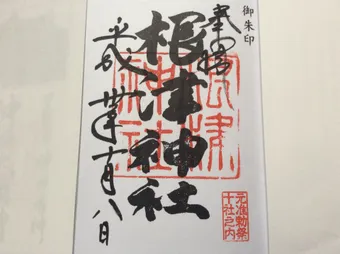 御朱印
奉拝
根津神社
根津神社
平成 年十月八日
元准勅祭
十社之内